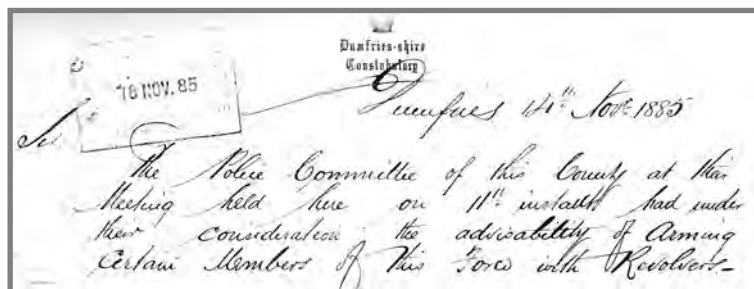 Dumfries-shire
Constabulary
18 NOV. 85
Dumfries 14th Novr. 1885
Sir
The Police Committee of this County at their
Meeting held here on 11th instant had under
their consideration the advisability of Arming
Certain Members of this Force with Revolvers—